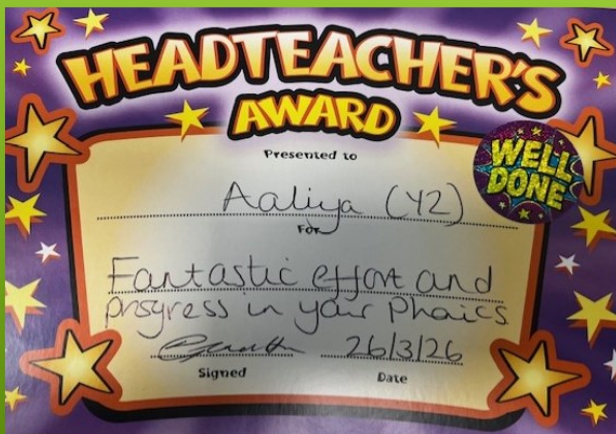 HEADTEACHER'S
AWARD
Presented to
WELL
DONE
Aaliya (Y2)
For
Fantastic effort and
progress in your Phoics
26/3/26
Signed
Date